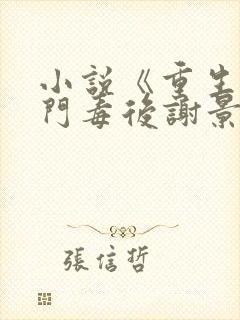 小說《重生
門毒後謝景
張信哲